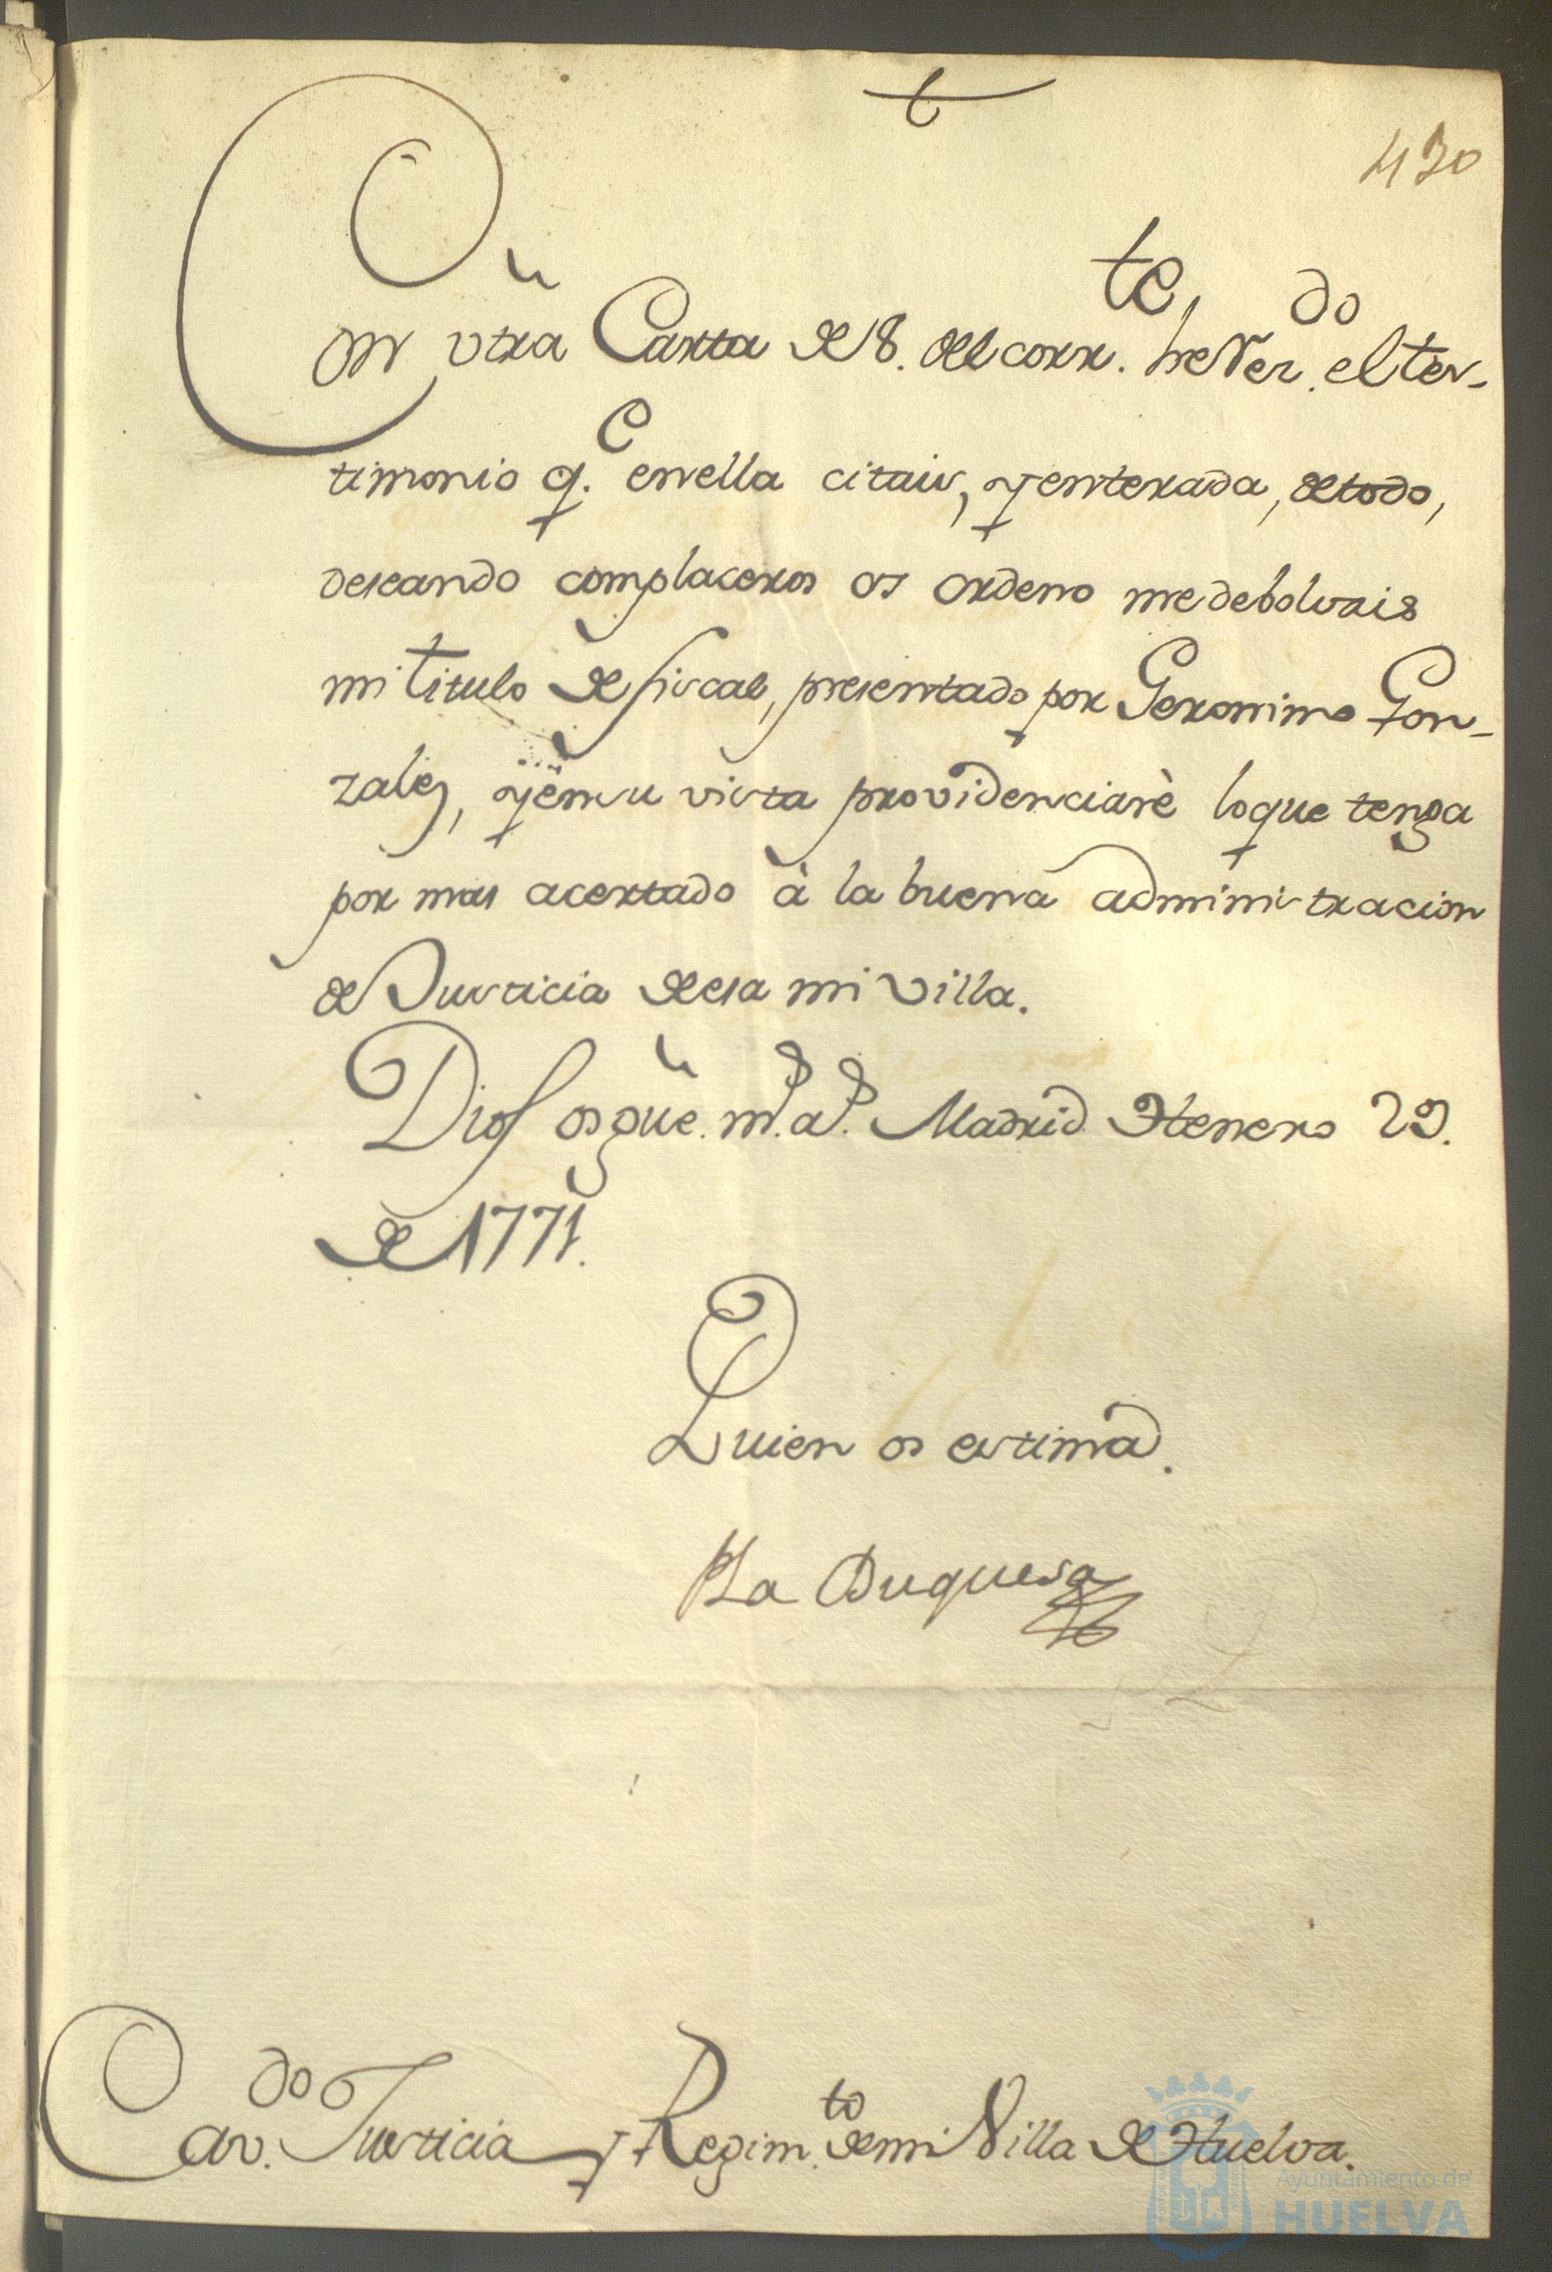 t
430
Con vtra Carta de 8. del corr.te he Rer.do el tes-
timonio q.e en ella citais, y enterada, de todo,
deseando complaceros os ordeno me debolvais
mi titulo de fiscal, presentado por Geronimo Gon-
zalez, y en su vista providenciarè lo que tenga
por mas acertado à la buena administracion
de Justicia de esa mi Villa.
Dios os gue. m.s a.s Madrid
de 1771.
Quien os estima.
La Duquesa
Cav.do Justicia y Regim.to de mi Villa de Huelva.
Ayuntamiento de
HUELVA